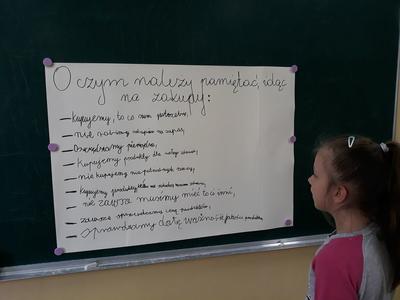 O czym należy pamiętać, idąc
na zakupy:
– Kupujemy, to co nam potrzebne,
– nie robimy zakupów na zapas,
– Oszczędzamy pieniądze,
– Kupujemy produkty dla całego domu,
– nie kupujemy niepotrzebnych rzeczy,
– Kupujemy produkty które
– nie zawsze musimy mieć to co inni,
– zawsze sprawdzamy cenę produktów,
– sprawdzamy datę ważności i jakości produktu